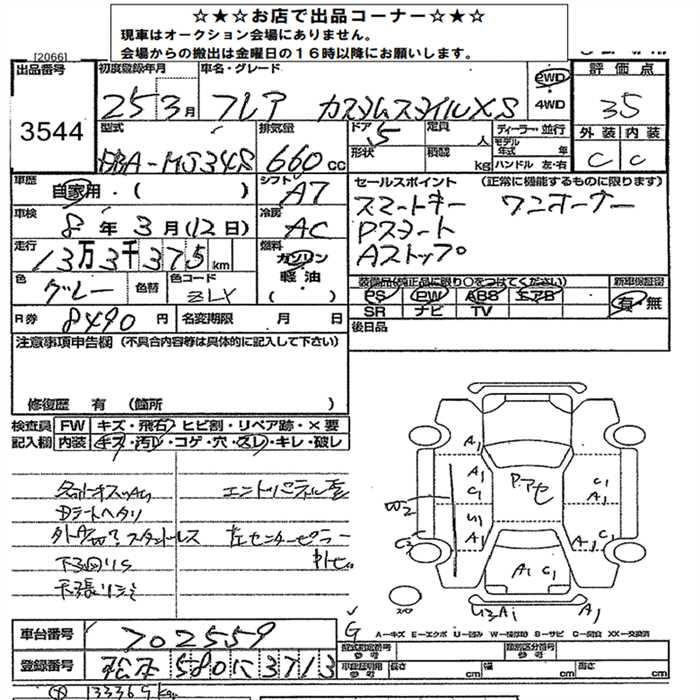 ☆★☆お店で出品コーナー☆★☆
現車はオークション会場にありません。
会場からの搬出は金曜日の16時以降にお願いします。
[2066]
出品番号 3544
初度登録年月 25 3月
車名・グレード フレア カスタムスタイルXS
2WD
4WD
評価点 3.5
外装 C 内装 C
型式 DBA-MJ34S
排気量 660 cc
ドア 5
定員 人
形状
積載 kg
ディーラー・並行
モデル年式 年
ハンドル 左・右
車歴 自家用・( )
シフト A7
車検 8年3月(12日)
冷房 AC
走行 13万3千375km
燃料 ガソリン
軽油
( )
色 グレー
色替
色コード ZLY
セールスポイント (正常に機能するものに限ります)
スマートキー ワンオーナー
Pスタート
Aストップ
装備品(純正品に限り○をつけてください)
新車保証書
PS PW ABS エアB
有・無
SR ナビ TV
後日品
R券 8490円
名変期限 月 日
注意事項申告欄 (不具合内容等は具体的に記入して下さい)
修復歴 有 (箇所 )
検査員 FW キズ・飛石・ヒビ割・リペア跡・×要
記入欄 内装 キズ・汚レ・コゲ・穴・スレ・キレ・破レ
Dシートヘタリ
下回リS
A1
A1
C1
W2
U1
A1
P.アセ
C1
A1
A1 C1
C2
A1 C1
スペア
A1
G
A-キズ E-エクボ U-凹み W-補修跡 S-サビ C-腐食 XX-交換済
車台番号 702559
登録番号 松本 580 に 3713
型式指定番号 参考
類別区分番号 参考
車庫証明用 参考
長さ cm
幅 cm
高さ cm